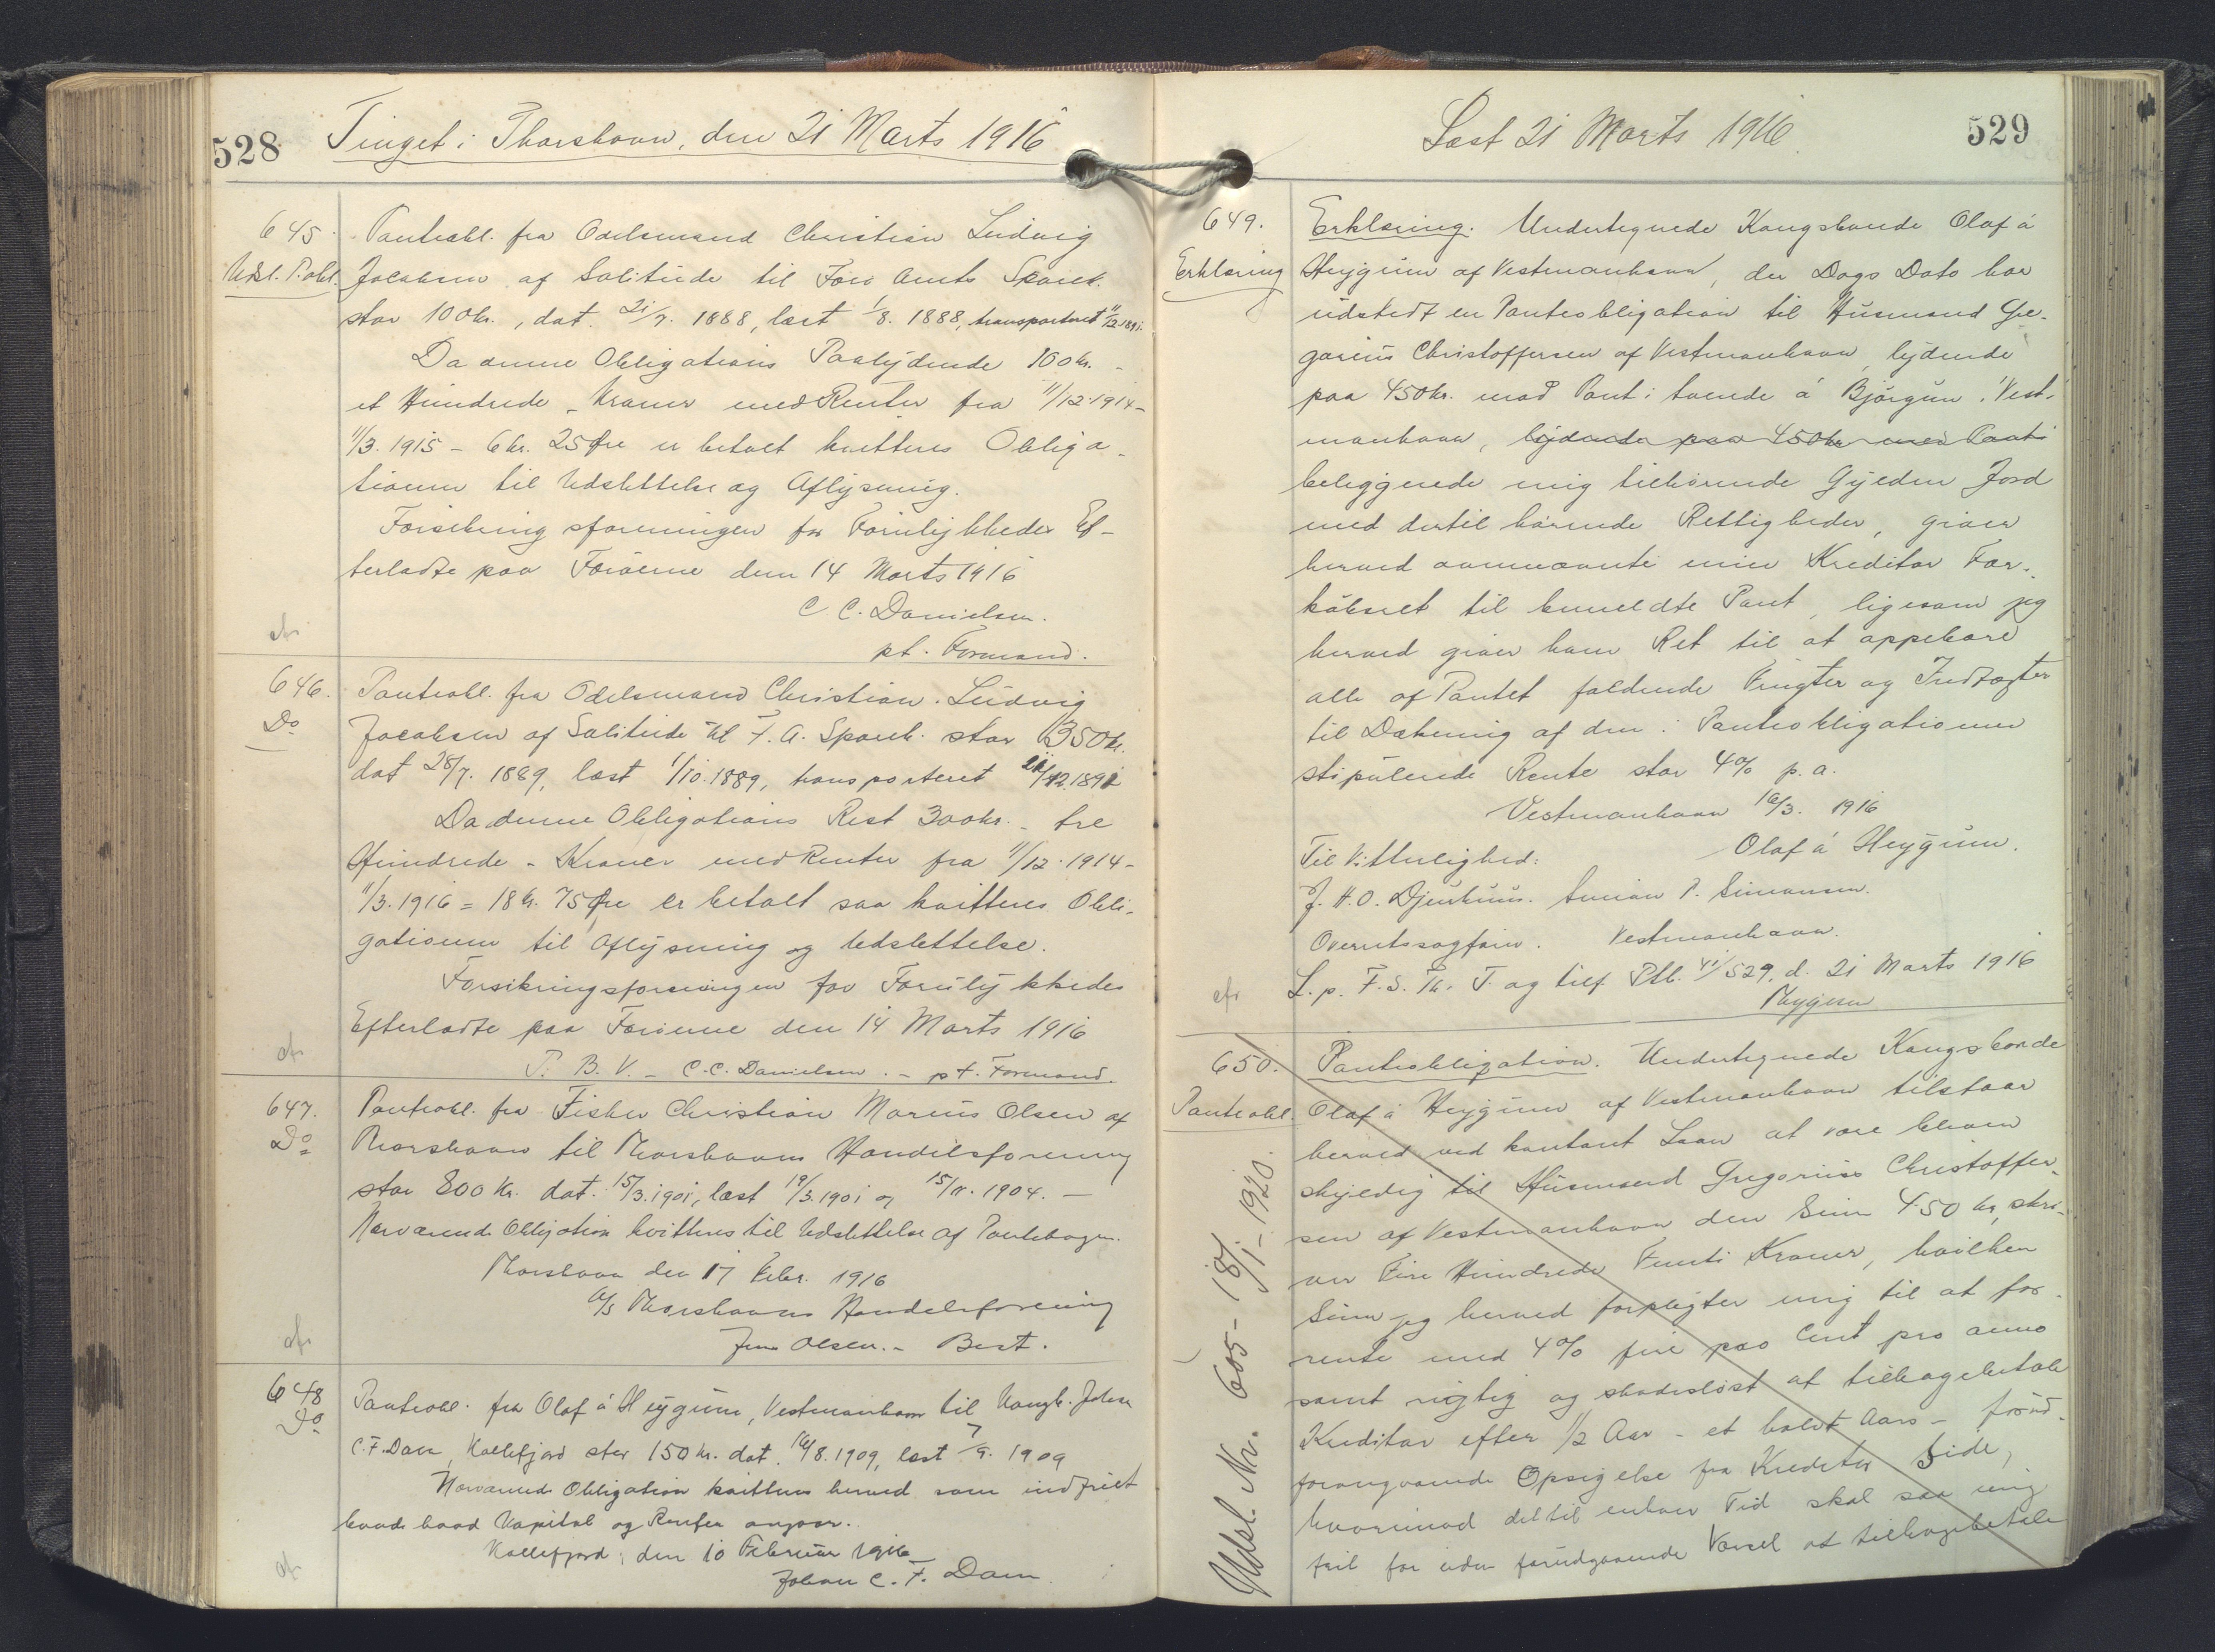 528
Tinget i Thorshavn, den 21 Marts 1916
645.
Udsl. P.obl.
Panteobl. fra Odelsmand Christian Ludvig
Jacobsen af Solitude til Færø Amts Sparek.
stor 100 kr., dat. 21/7. 1888, læst 1/8. 1888, transporteret 11/12.1891.
Da denne Obligations Paalydende 100 kr. -
et Hundrede - Kroner med Renter fra 11/12.1914-
11/3.1915 - 6 kr. 25 Øre er betalt kvitteres Obliga-
tionen til Udslettelse og Aflysning.
Forsikringsforeningen for Forulykkedes Ef-
terladte paa Færøerne den 14 Marts 1916
C C. Danielsen.
pt. Formand.
646.
Do
Panteobl. fra Odelsmand Christian Ludvig
Jacobsen af Solitude til F. A. Sparek. stor 1350 kr.
dat 28/7. 1889, læst 1/10.1889, transporteret
Da denne Obligations Rest 300 kr. - tre
Hundrede - Kroner med Renter fra 11/12.1914-
11/3.1916 = 18 kr. 75 Øre er betalt saa kvitteres Obli-
gationen til Aflysning og Udslettelse.
Forsikringsforeningen for Forulykkedes
Efterladte paa Færøerne den 14 Marts 1916
P. B. V. - C.C. Danielsen. - pt. Formand.
647.
Do
Panteobl. fra Fisker Christian Marius Olsen af
Thorshavn til Thorshavns Handelsforening
stor 800 Kr. dat. 15/3.1901, læst 19/3.1901 og 15/11.1904. -
Nærværende Obligation kvitteres til Udslettelse af Pantebogen.
Thorshavn den 17 Febr. 1916
A/S Thorshavns Handelsforening
Jens Olsen. - Best.
648
Do
Panteobl. fra Olaf á Heygum, Vestmanhavn til Kongb. Johan
C.F. Dam, Kollefjord stor 150 kr. dat. 16/8.1909, læst 7/9. 1909
Nærværende Obligation kvitteres herved som indfriet
baade hvad Kapital og Renter angaar.
Kollefjord, den 10 Februar 1916
Johan C. F. Dam
Læst 21 Marts 1916.
529
649.
Erklæring
Erklæring. Undertegnede Kongsbonde Olaf á
Heygum af Vestmanhavn, der Dags Dato har
udstedt en Panteobligation til Husmand Gre-
gorius Christoffersen af Vestmanhavn, lydende
paa 450 kr. mod Pant i tvende á Bjørgum i Vest-
manhavn, lydende paa 450 kr med Pant i
beliggende mig tilhørende Gyeden Jord
med dertil hørende Rettigheder, giver
herved ovennævnte min Kreditor For-
købsret til bemeldte Pant, ligesom jeg
herved giver ham Ret til at oppebære
alle af Pantet faldende Frugter og Indtægter
til Dækning af den i Panteobligationen
stipulerede Rente stor 4% p. a.
Vestmanhavn 16/3. 1916
Olaf á Heygum.
Til Vitterlighed:
J. H. O. Djurhuus. Simon P. Simonsen.
Overretssagfører. Vestmanhavn.
L. p. F. S. Th. T. og tilf Ptb. 41/529, d. 21 Marts 1916
650.
Panteobl.
Panteobligation. Undertegnede Kongsbonde
Olaf á Heygum af Vestmanhavn tilstaar
herved ved kontant Laan at være bleven
skyldig til Husmand Gregorius Christoffer-
sen af Vestmanhavn den Sum 450 kr, skri-
ver Fire Hundrede Femti Kroner, hvilken
Sum jeg herved forpligter mig til at for-
rente med 4% fire pro Cent pro anno
samt rigtig og skadesløst at tilbagebetale
Kreditor efter 1/2 Aar - et halvt Aars - forud-
foregaaende Opsigelse fra Kreditors Side,
hvorimod det til enhver Tid skal staa mig
frit for uden forudgaaende Varsel at tilbagebetale
Udsl. Nr. 605 - 18/1 - 1920.